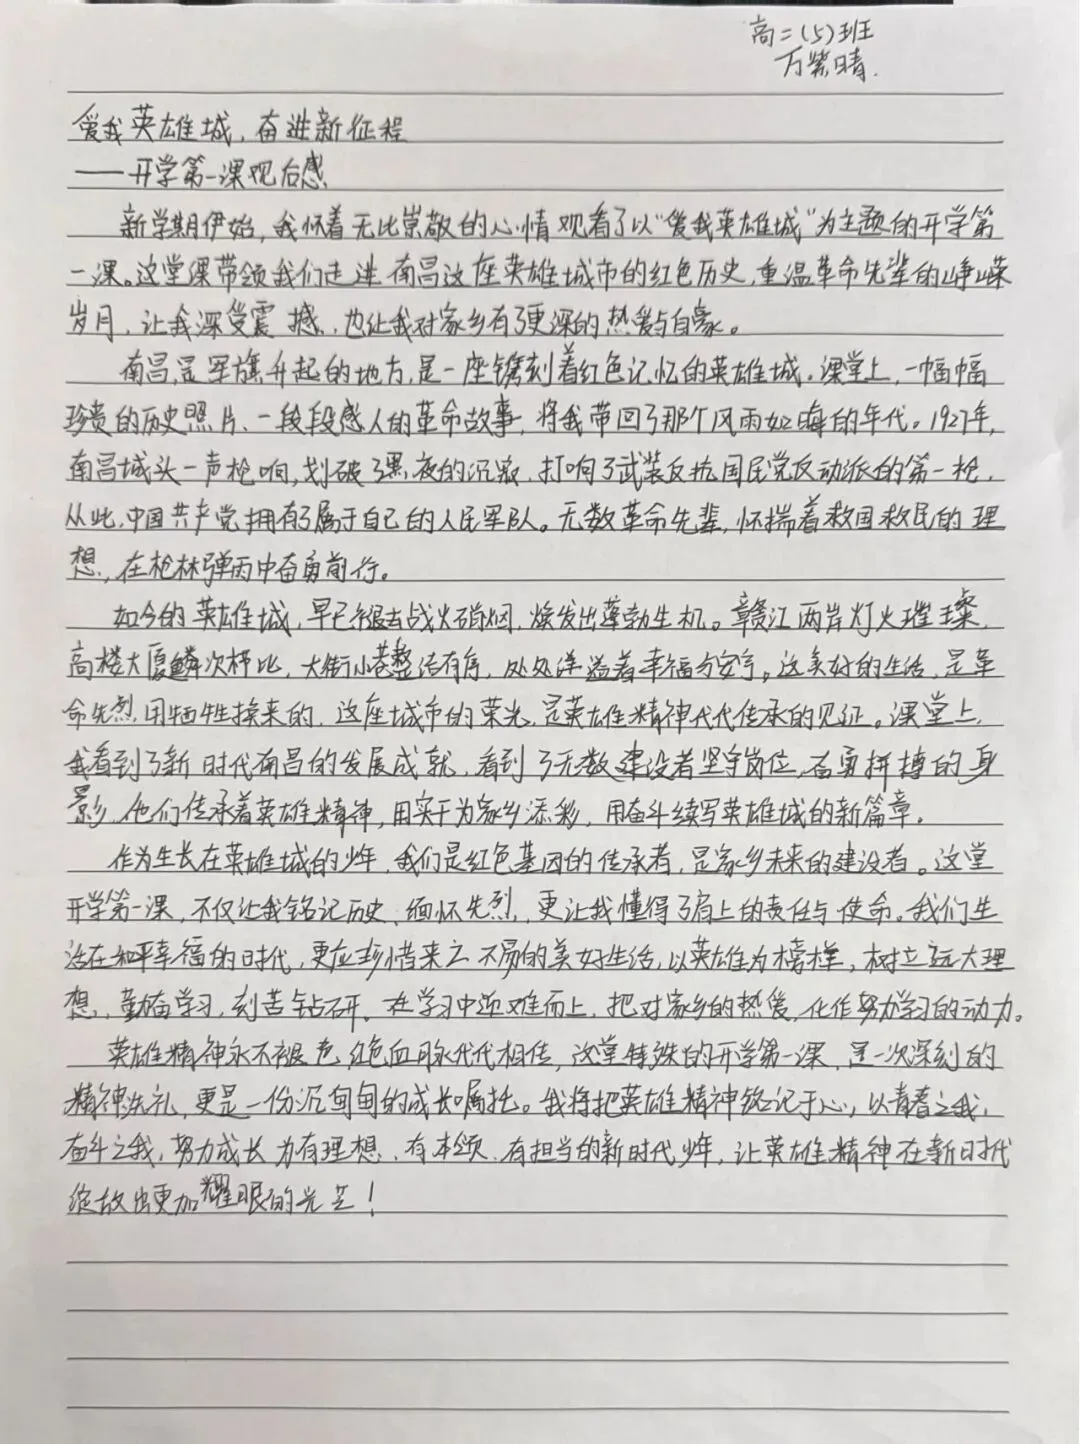 高二(5)班
万紫晴.
爱我英雄城,奋进新征程
——开学第一课观后感
新学期伊始,我怀着无比崇敬的心情观看了以“爱我英雄城”为主题的开学第
一课。这堂课带领我们走进南昌这座英雄城市的红色历史,重温革命先辈的峥嵘
岁月,让我深受震撼,也让我对家乡有了更深的热爱与自豪。
南昌,是军旗升起的地方,是一座镌刻着红色记忆的英雄城。课堂上,一幅幅
珍贵的历史照片、一段段感人的革命故事,将我带回了那个风雨如晦的年代。1927年,
南昌城头一声枪响,划破了黑夜的沉寂,打响了武装反抗国民党反动派的第一枪,
从此,中国共产党拥有了属于自己的人民军队。无数革命先辈,怀揣着救国救民的理
想,在枪林弹雨中奋勇前行。
如今的英雄城,早已褪去战火硝烟,焕发出蓬勃生机。赣江两岸灯火璀璨,
高楼大厦鳞次栉比,大街小巷整洁有序,处处洋溢着幸福与安宁。这美好的生活,是革
命先烈用牺牲换来的,这座城市的荣光,是英雄精神代代传承的见证。课堂上,
我看到了新时代南昌的发展成就,看到了无数建设者坚守岗位、奋勇拼搏的身
影,他们传承着英雄精神,用实干为家乡添彩,用奋斗续写英雄城的新篇章。
作为生长在英雄城的少年,我们是红色基因的传承者,是家乡未来的建设者。这堂
开学第一课,不仅让我铭记历史、缅怀先烈,更让我懂得了肩上的责任与使命。我们生
活在和平幸福的时代,更应珍惜来之不易的美好生活,以英雄为榜样,树立远大理
想,勤奋学习,刻苦钻研,在学习中迎难而上,把对家乡的热爱,化作努力学习的动力。
英雄精神永不褪色,红色血脉代代相传,这堂特殊的开学第一课,是一次深刻的
精神洗礼,更是一份沉甸甸的成长嘱托。我将把英雄精神铭记于心,以青春之我,
奋斗之我,努力成长为有理想、有本领、有担当的新时代少年,让英雄精神在新时代
绽放出更加耀眼的光芒!